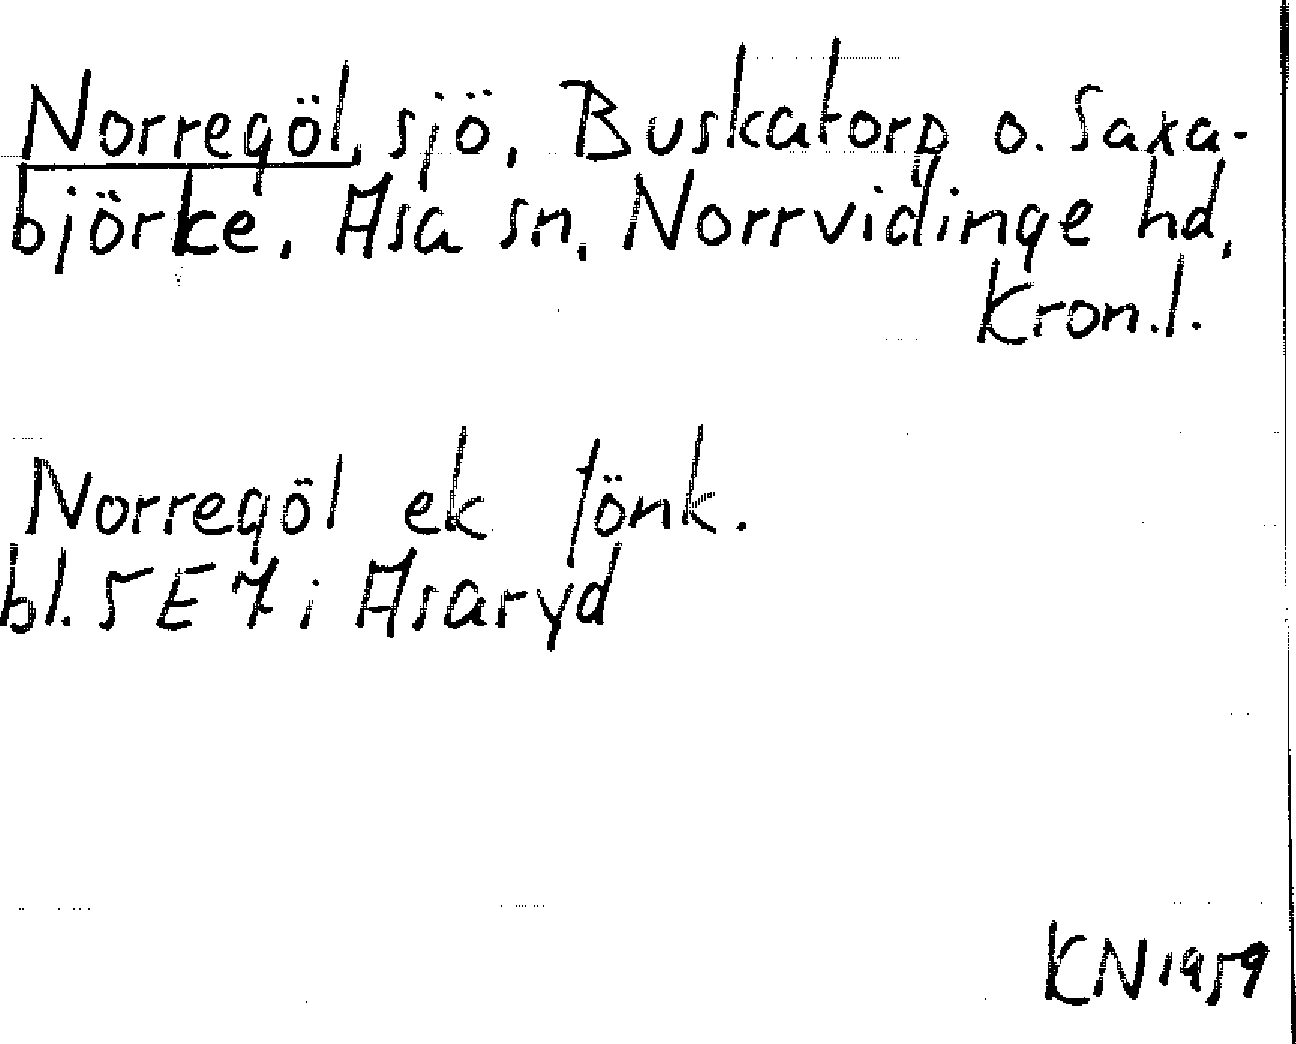 Norregöl, sjö, Buskatorp o. Saxa-
björke, Asa sn, Norrvidinge hd,
Kron.l.
Norregöl ek Jönk.
bl. 5 E 7 i Asaryd
KN 1959